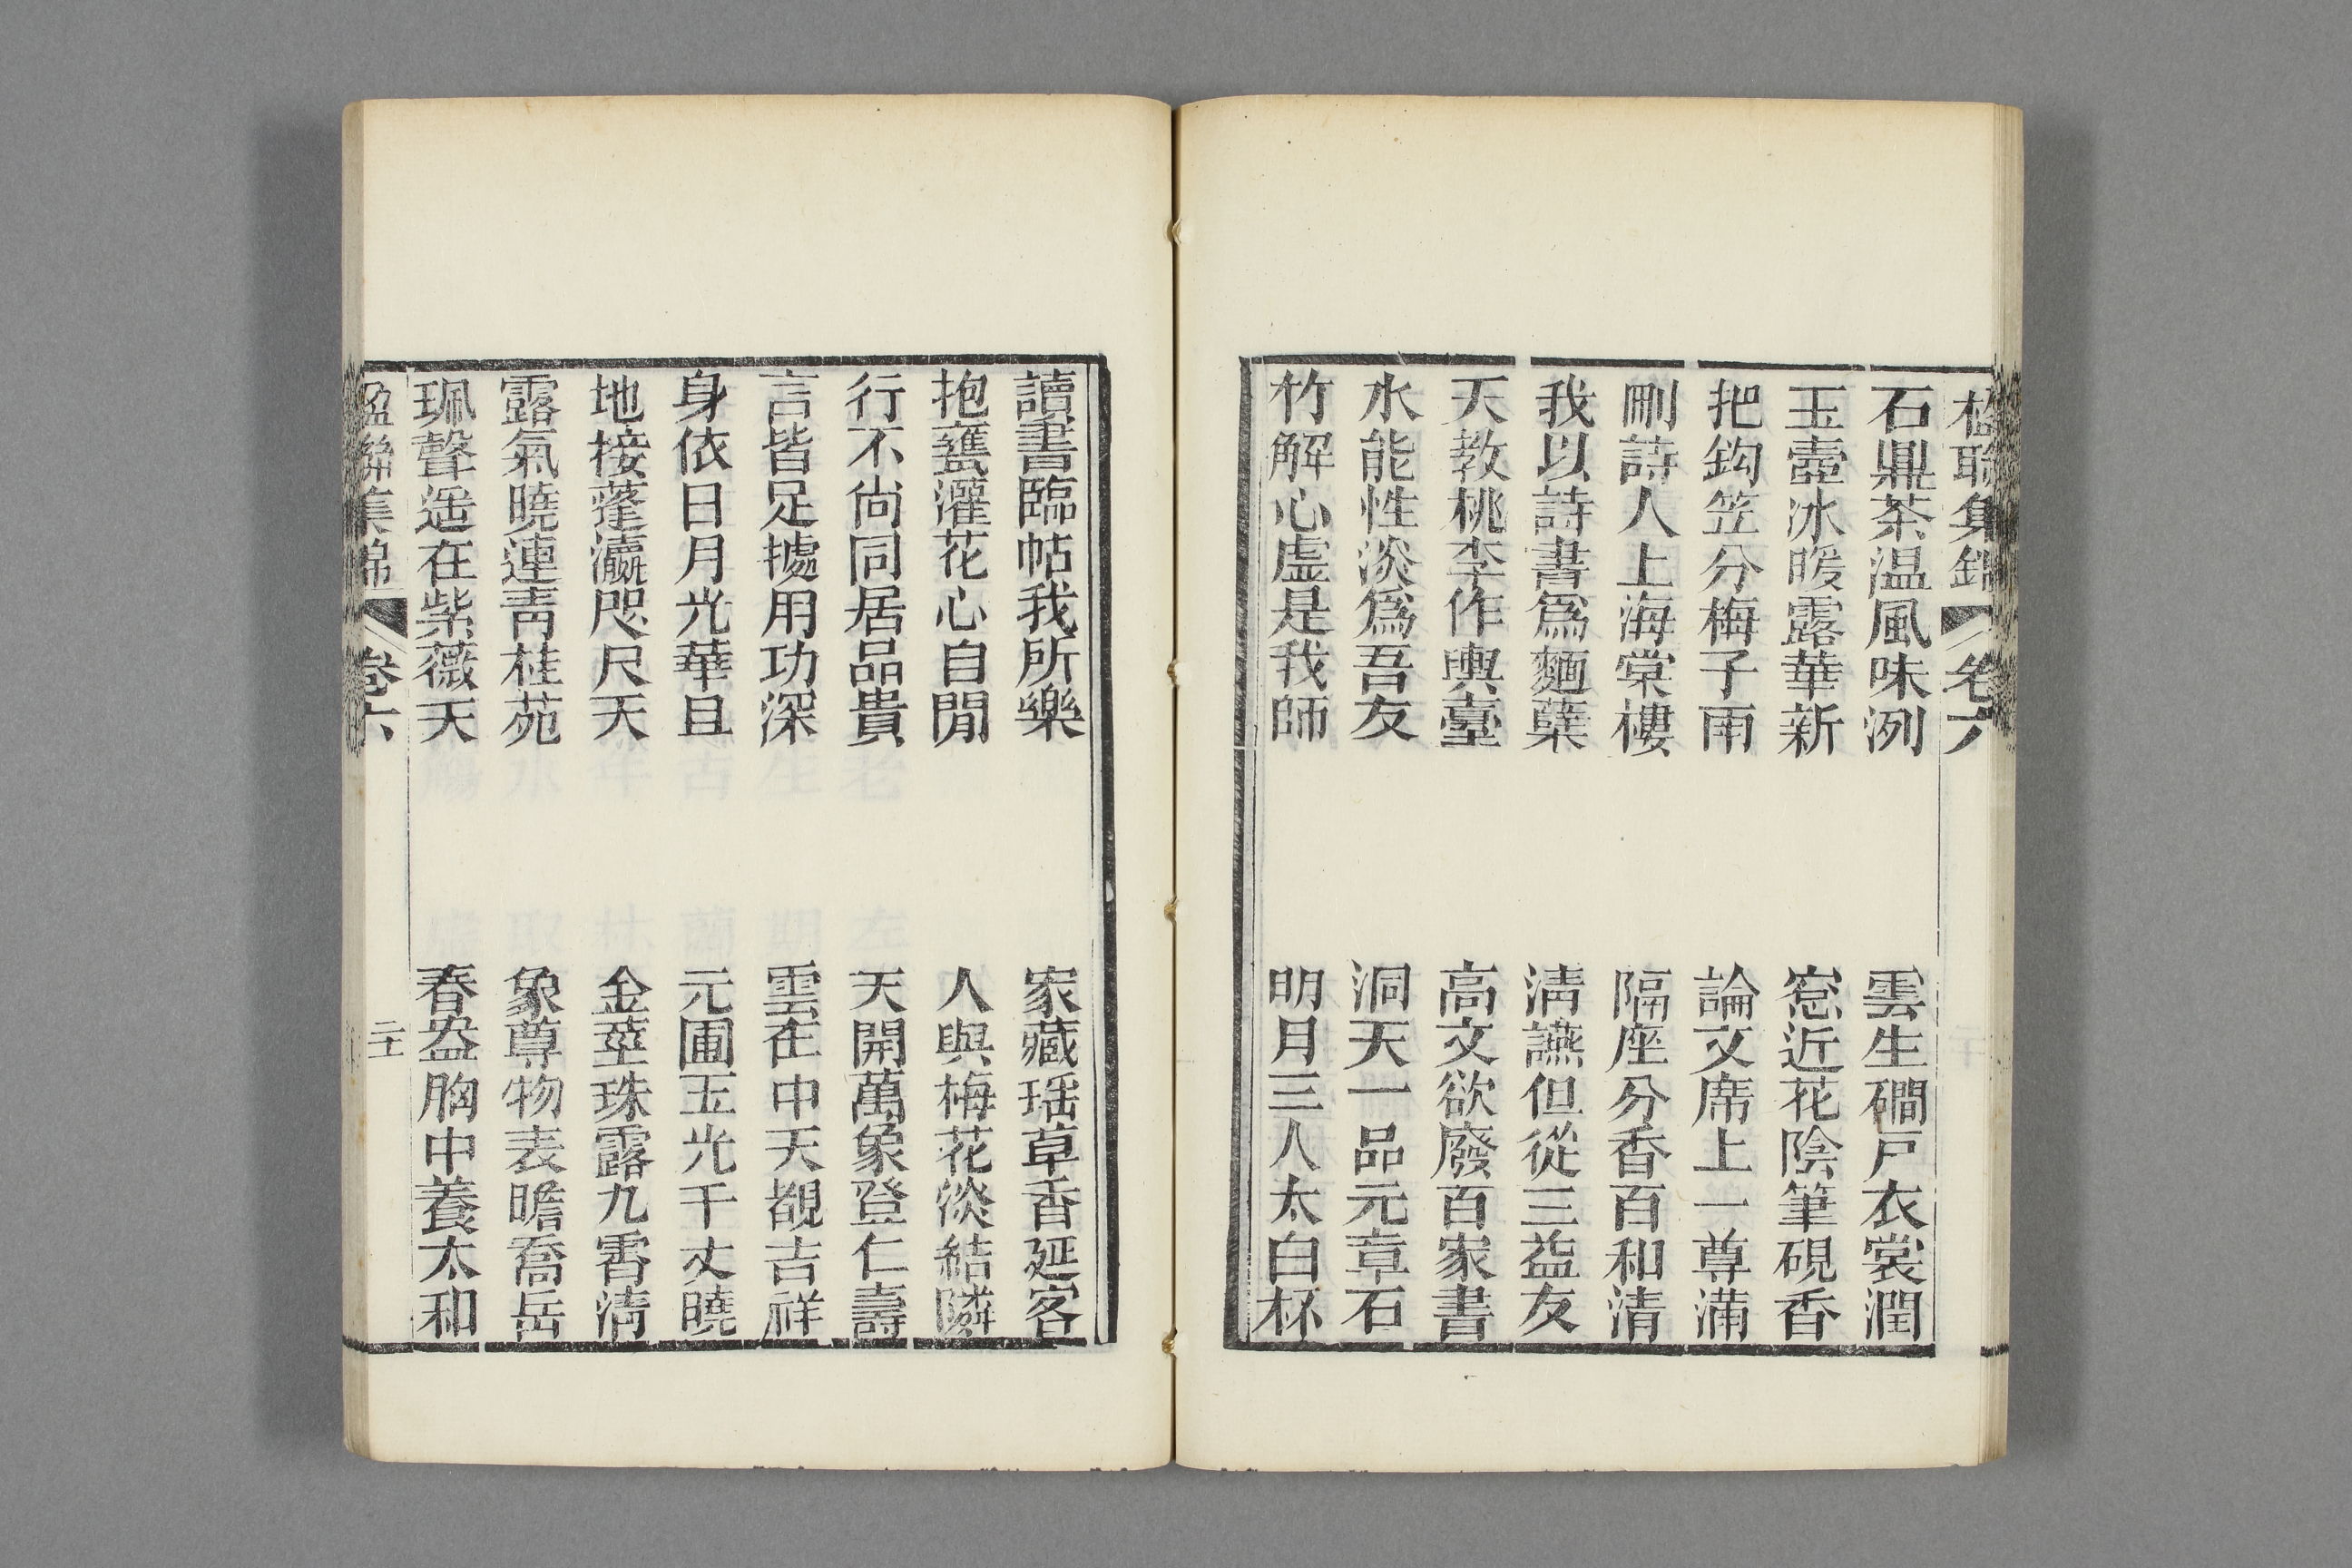 楹聯集錦 卷六
石鼎茶温風味洌 雲生磵戸衣裳潤
玉壺冰暖露華新 窓近花陰筆硯香
把鈎笠分梅子雨 論文席上一尊滿
刪詩人上海棠樓 隔座分香百和清
我以詩書爲麯蘖 淸讌但從三益友
天教桃李作輿臺 高文欲廢百家書
水能性淡爲吾友 洞天一品元章石
竹解心虛是我師 明月三人太白杯
讀書臨帖我所樂 家藏瑶草香延客
抱甕灌花心自閒 人與梅花淡結隣
行不尙同居品貴 天開萬象登仁壽
言皆足據用功深 雲在中天覩吉祥
身依日月光華且 元圃玉光千丈曉
地接蓬瀛咫尺天 金莖珠露九霄淸
露氣曉連靑桂苑 象尊物表瞻喬岳
珮聲遥在紫薇天 春盎胸中養太和
楹聯集錦 卷六 二十